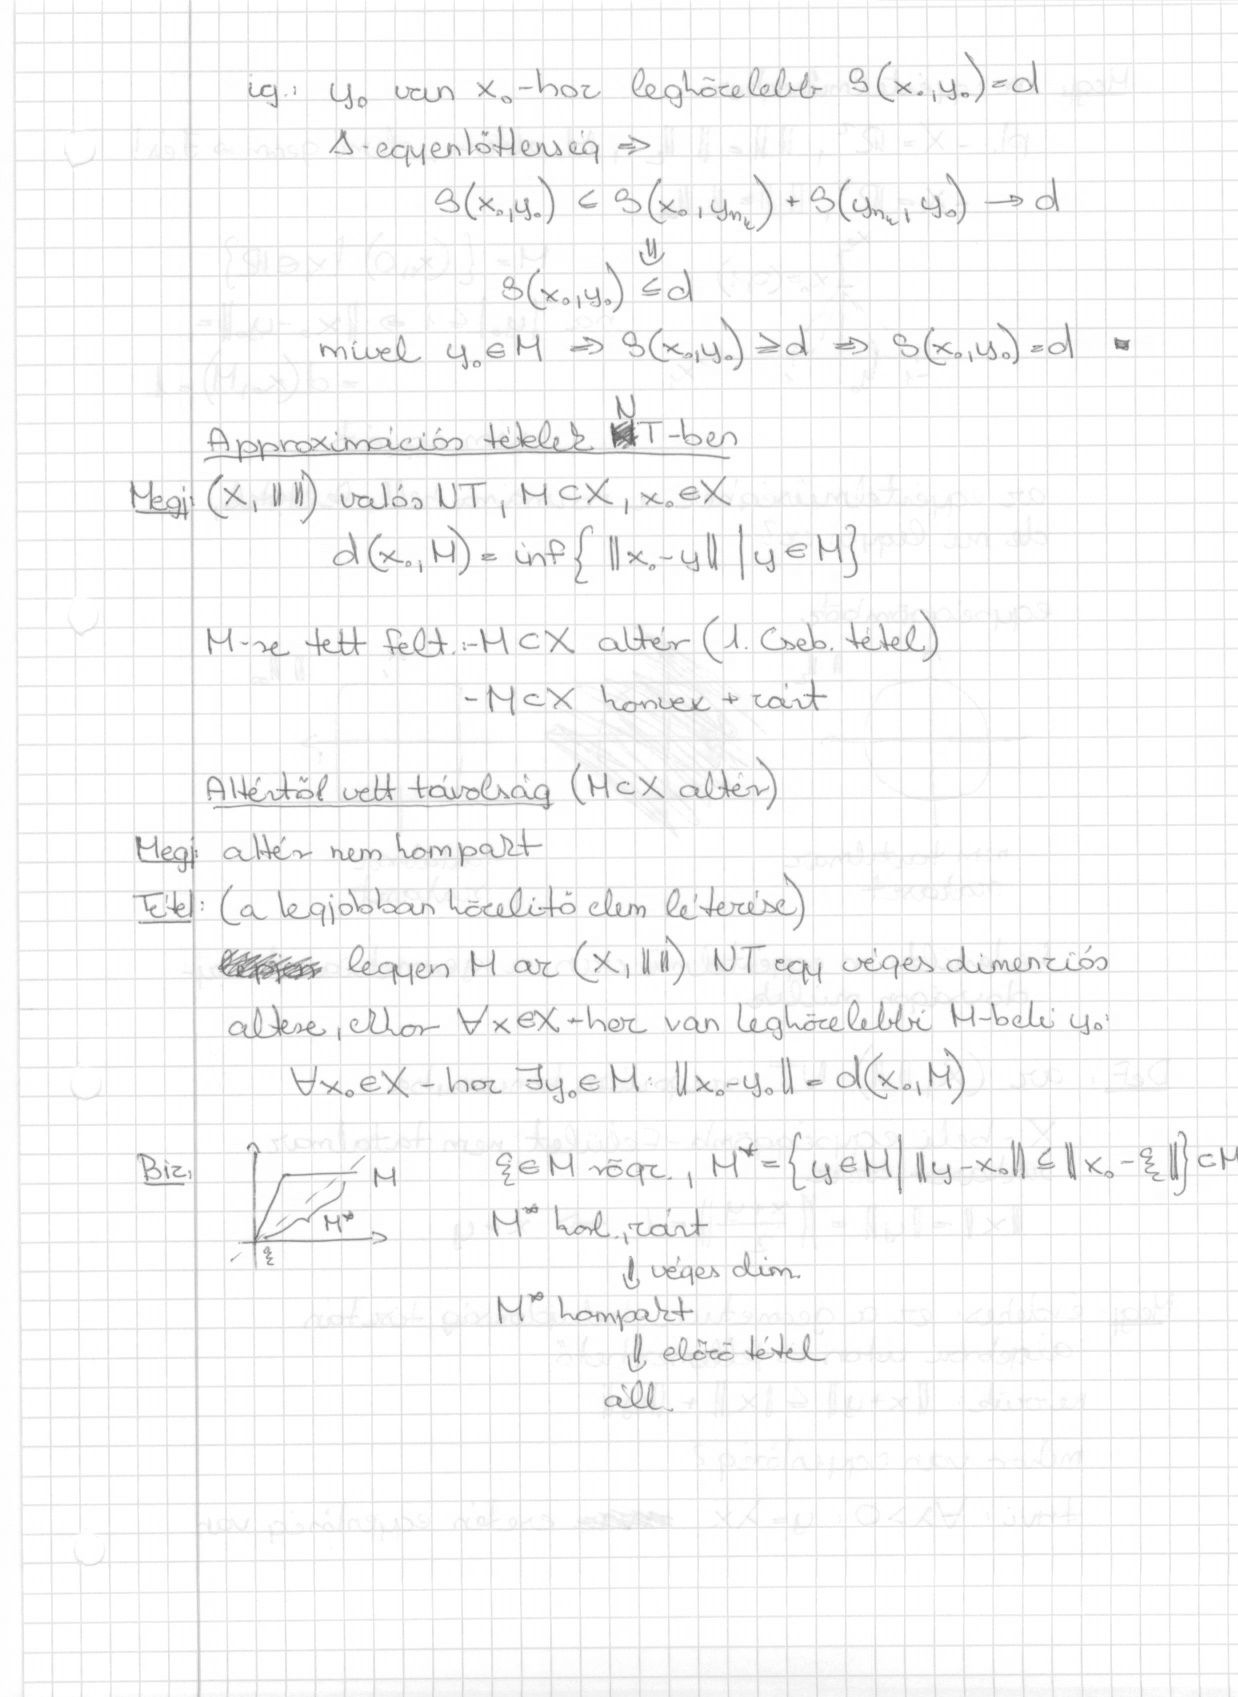 ig.: y₀ van x₀-hoz legközelebb ρ(x₀,y₀)=d
Δ-egyenlőtlenség ⇒
ρ(x₀,y₀) ≤ ρ(x₀,yₙₖ) + ρ(yₙₖ,y₀) → d
⇓
ρ(x₀,y₀) ≤ d
mivel y₀∈M ⇒ ρ(x₀,y₀) ≥ d ⇒ ρ(x₀,y₀)=d ▪
Approximációs tételek NT-ben
Megj: (X,‖‖) valós NT, M⊂X, x₀∈X
d(x₀,M) = inf{ ‖x₀-y‖ | y∈M}
M-re tett felt.:-M⊂X altér (1. Cseb. tétel)
-M⊂X konvex + zárt
Altértől vett távolság (M⊂X altér)
Megj: altér nem kompakt
Tétel: (a legjobban közelítő elem létezése)
legyen M az (X,‖‖) NT egy véges dimenziós
altere, ekkor ∀x∈X-hez van legközelebbi M-beli y₀:
∀x₀∈X-hoz ∃y₀∈M: ‖x₀-y₀‖ = d(x₀,M)
Biz. M M* ξ ξ∈M rögz., M*={y∈M| ‖y-x₀‖ ≤ ‖x₀-ξ‖}⊂M
M* korl., zárt
⇓ véges dim.
M* kompakt
⇓ előző tétel
áll.